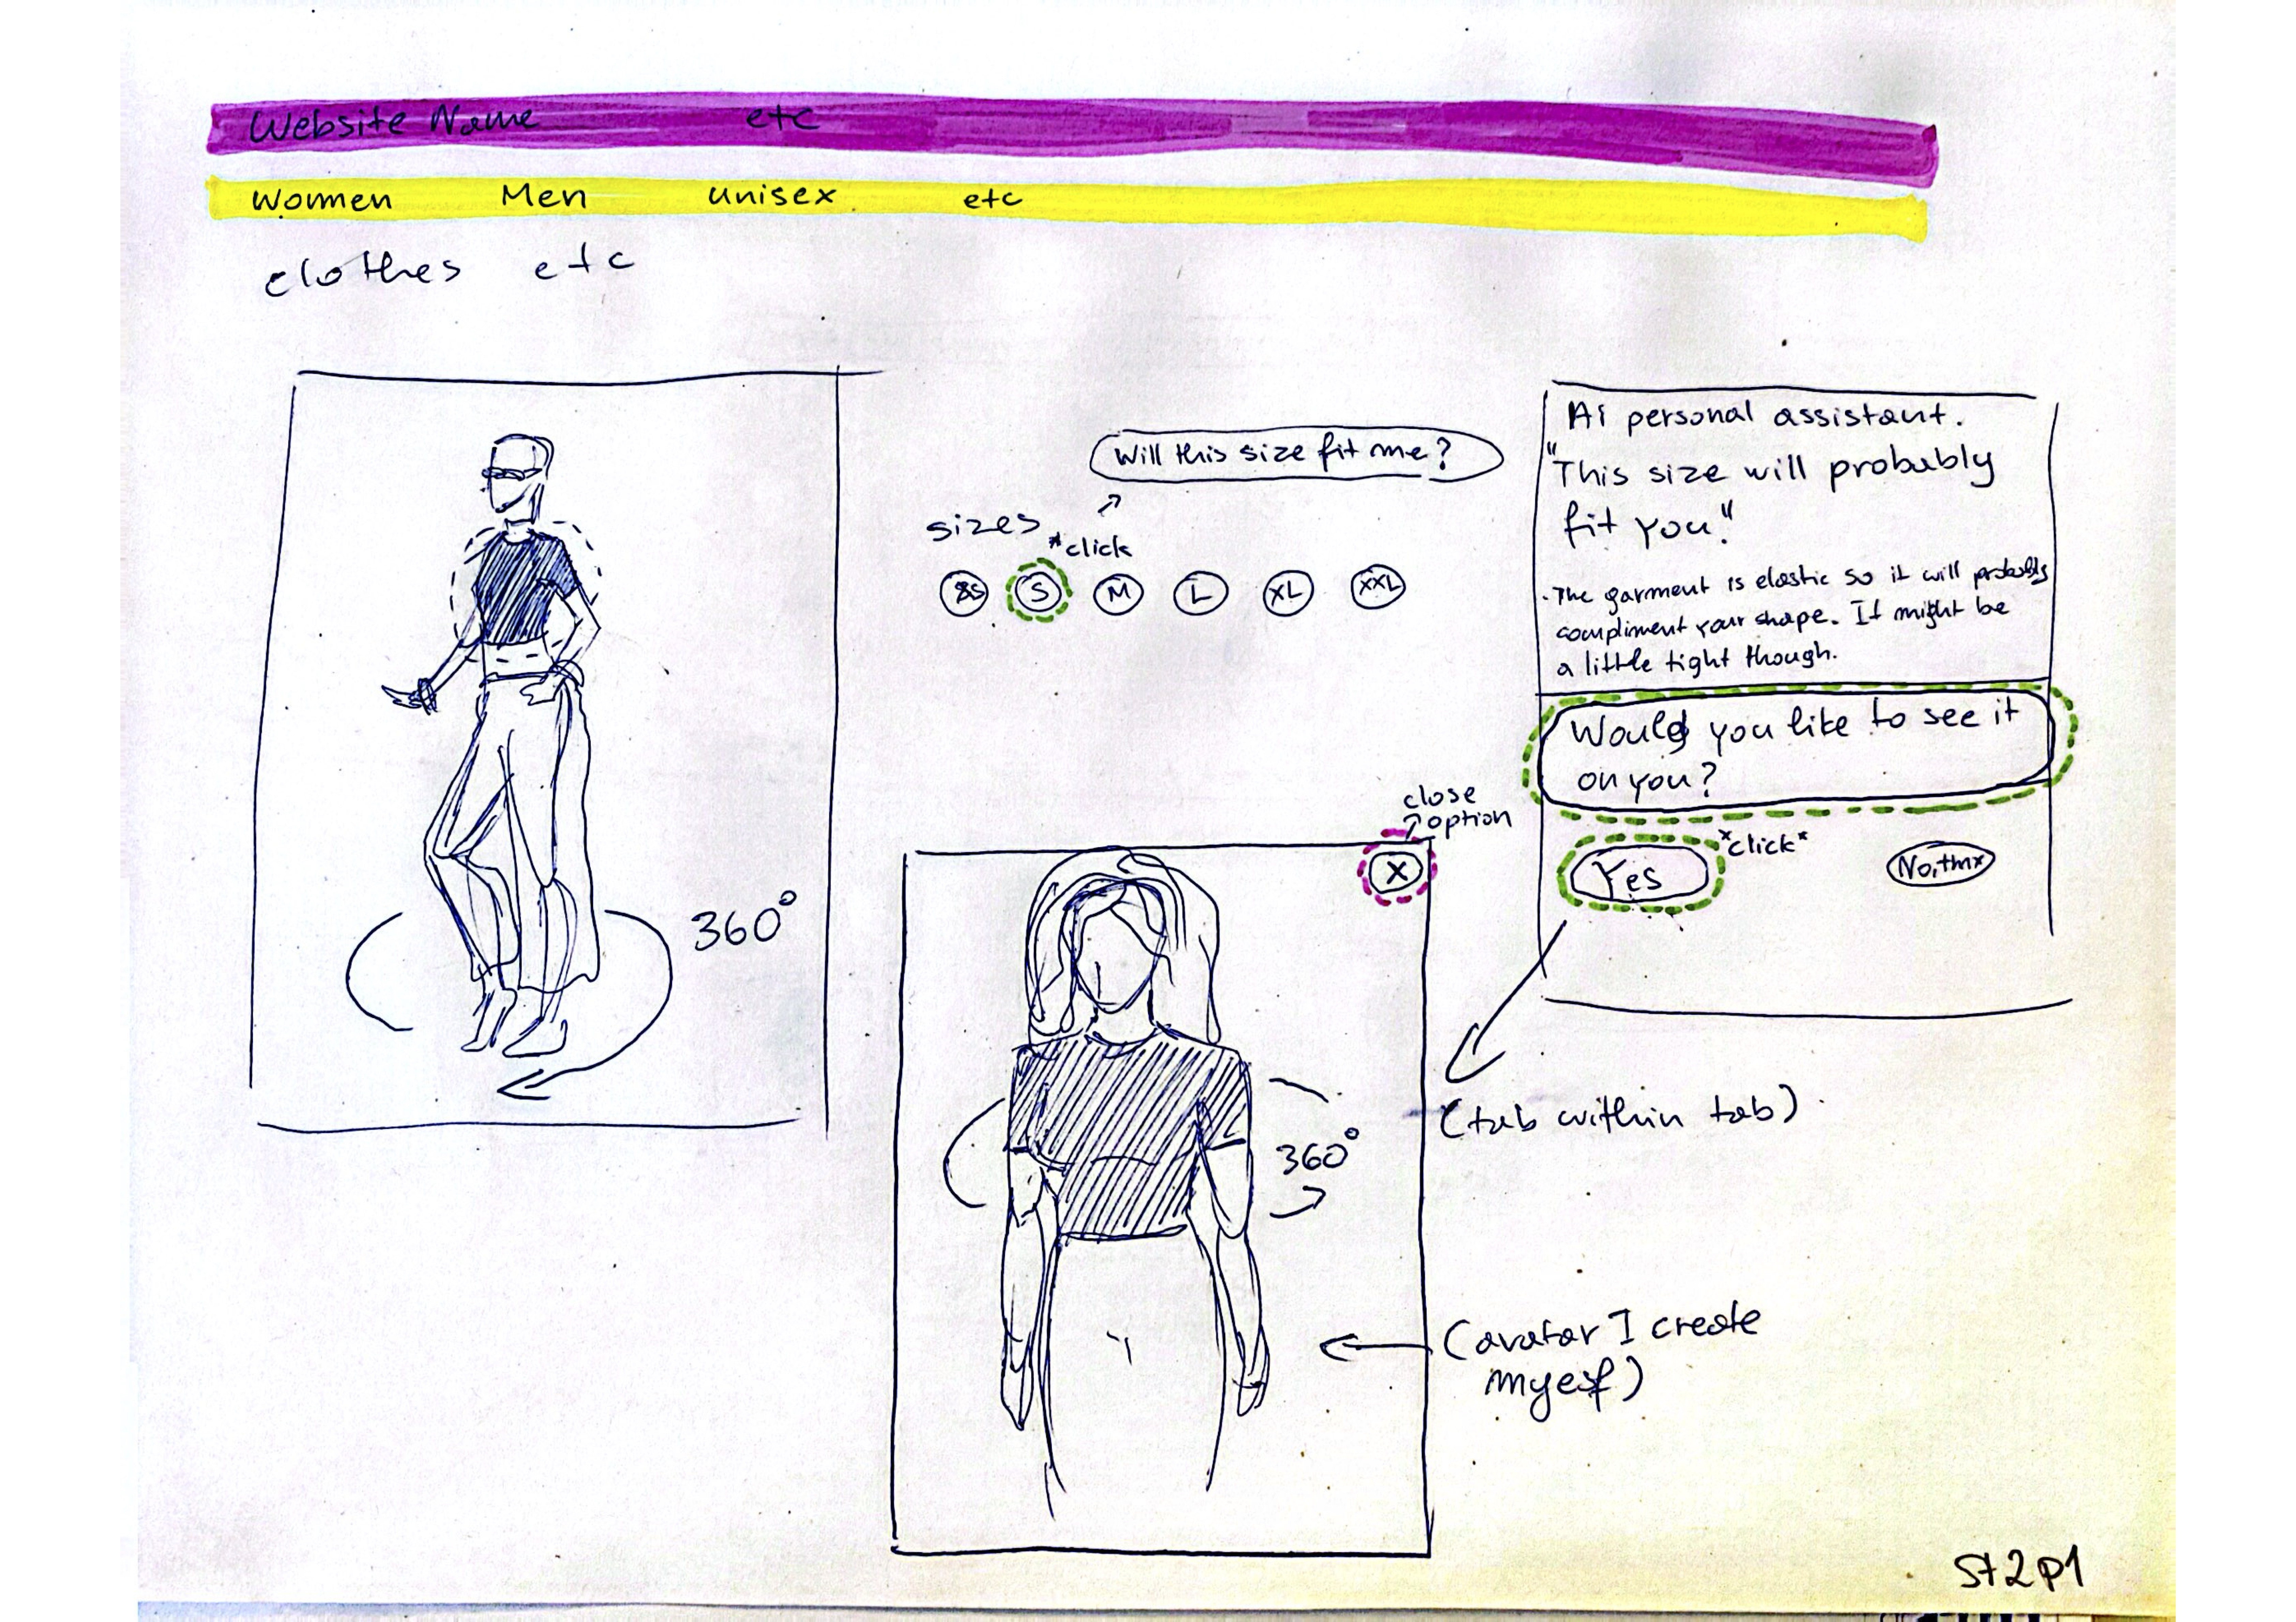 Website Name etc
Women Men unisex etc
clothes etc
Will this size fit me?
sizes *click
S M L XL XXL
360°
Ai personal assistant.
"This size will probably
fit you"
. The garment is elastic so it will probably
compliment your shape. It might be
a little tight though.
Would you like to see it
on you?
Yes *click* No, thnx
close
option
X
360°
(tab within tab)
(avatar I create
myself)
St2P1